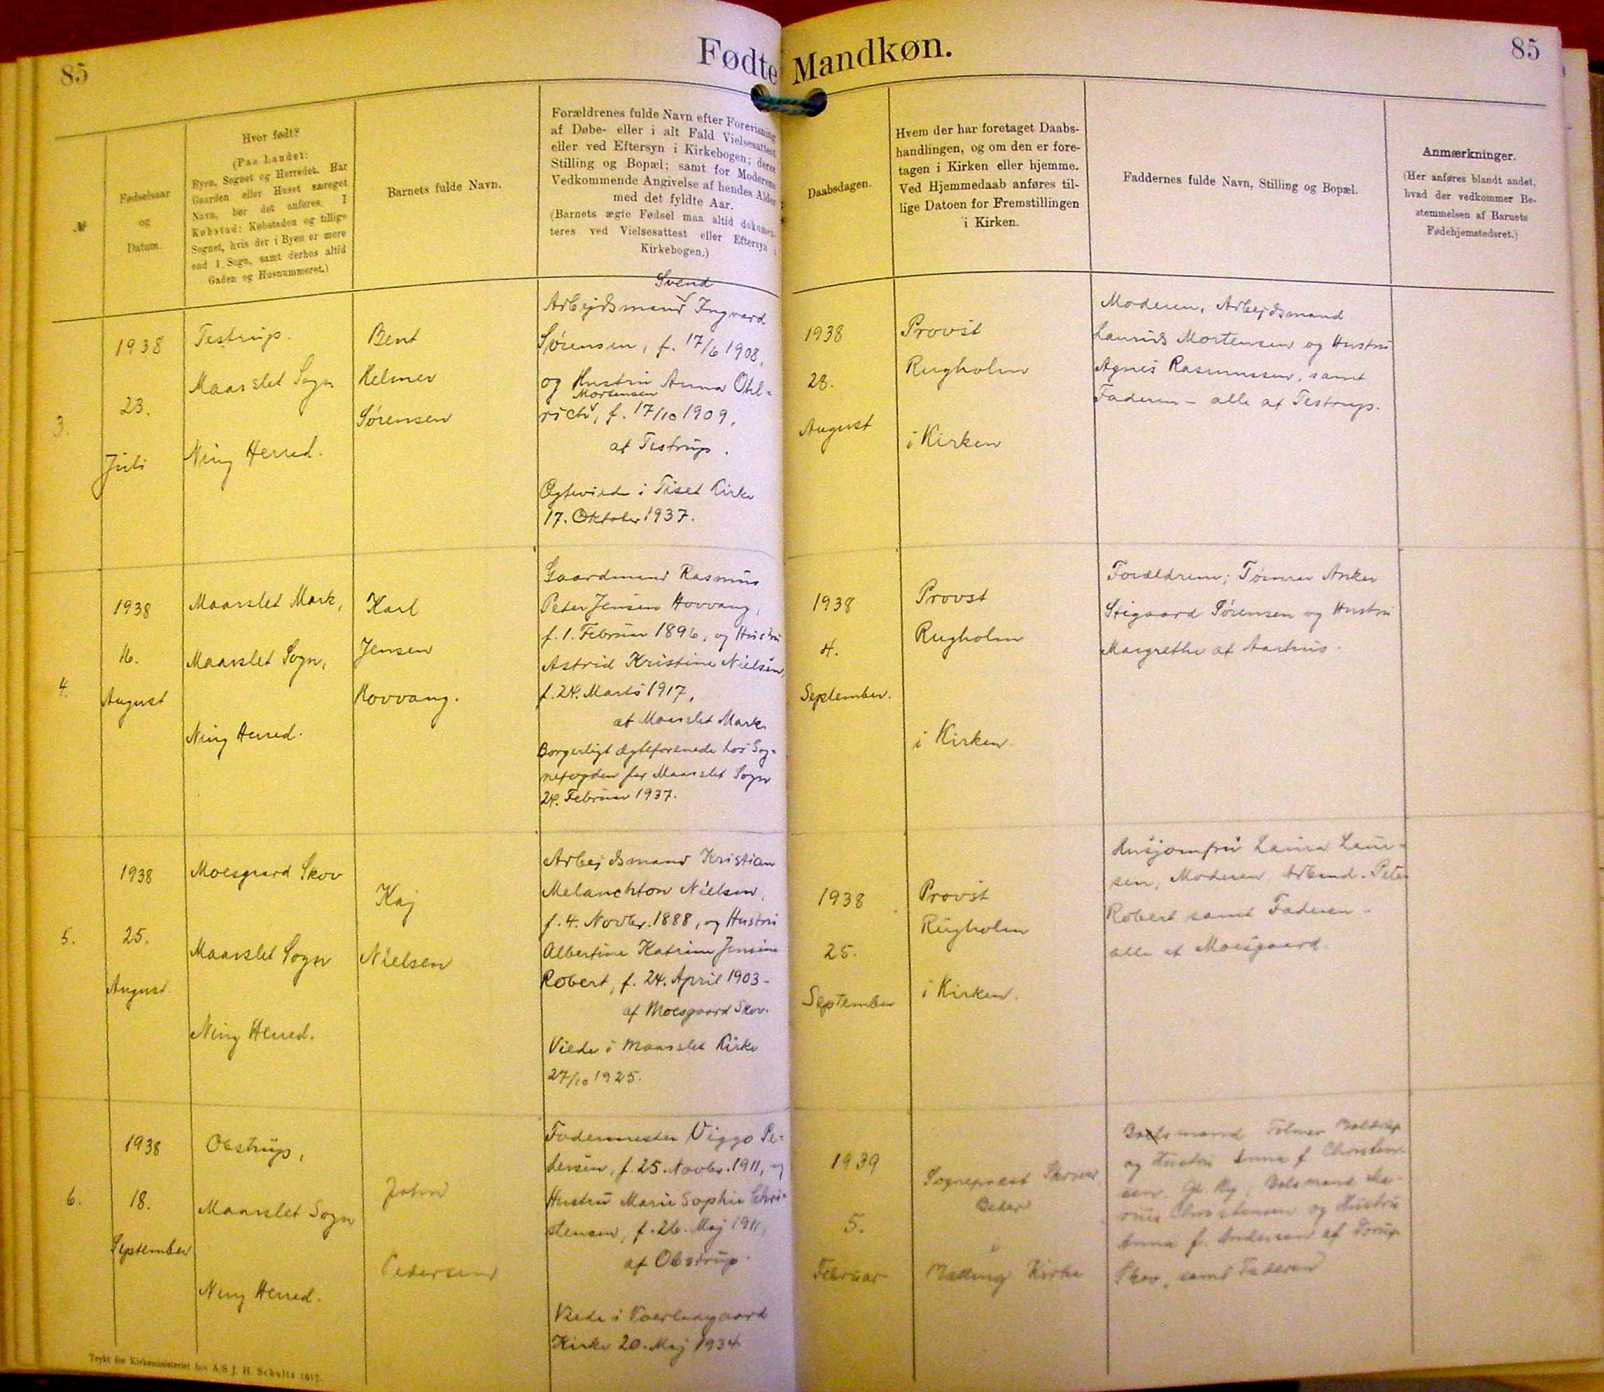 85
Fødte Mandkøn.
85
№
Fødselsaar
og
Datum.
Hvor født?
(Paa Landet:
Byen, Sognet og Herredet. Har
Gaarden eller Huset særeget
Navn, bør det anføres. I
Købstad: Købstaden og tillige
Sognet, hvis der i Byen er mere
end 1 Sogn, samt derhos altid
Gaden og Husnummeret.)
Barnets fulde Navn.
Forældrenes fulde Navn efter Forevisning
af Døbe- eller i alt Fald Vielsesattest
eller ved Eftersyn i Kirkebogen; deres
Stilling og Bopæl; samt for Moderens
Vedkommende Angivelse af hendes Alder
med det fyldte Aar.
(Barnets ægte Fødsel maa altid dokumen-
teres ved Vielsesattest eller Eftersyn i
Kirkebogen.)
Daabsdagen.
Hvem der har foretaget Daabs-
handlingen, og om den er fore-
tagen i Kirken eller hjemme.
Ved Hjemmedaab anføres til-
lige Datoen for Fremstillingen
i Kirken.
Faddernes fulde Navn, Stilling og Bopæl.
Anmærkninger.
(Her anføres blandt andet,
hvad der vedkommer Be-
stemmelsen af Barnets
Fødehjemstedsret.)
3.
1938
23.
Juli
Testrup.
Maarslet Sogn
Ning Herred.
Bent
Helmer
Sørensen
Svend
Arbejdsmand Ingvard
Sørensen, f. 17/6 1908,
og Hustru Anna
Mortensen
f. 17/10 1909,
af Testrup.
Ægteviede i Tiset Kirke
17. Oktober 1937.
1938
28.
August
Provst
Rugholm
i Kirken
Moderen, Arbejdsmand
Laurids Mortensen og Hustru
Agnes Rasmussen, samt
Faderen - alle af Testrup.
4.
1938
16.
August
Maarslet Mark,
Maarslet Sogn,
Ning Herred.
Karl
Jensen
Hovvang.
Gaardmand Rasmus
Peter Jensen Hovvang,
f. 1. Februar 1896, og Hustru
Astrid Kristine Nielsen,
f. 24. Marts 1917,
af Maarslet Mark.
Borgerligt ægteforenede hos Sog-
nefogden for Maarslet Sogn
24. Februar 1937.
1938
4.
September.
Provst
Rugholm
i Kirken.
Forældrene; Tømrer Anker
Stigaard Sørensen og Hustru
Margrethe af Aarhus.
5.
1938
25.
August
Moesgaard Skov
Maarslet Sogn
Ning Herred.
Kaj
Nielsen
Arbejdsmand Kristian
Melanchton Nielsen,
f. 4. Novbr. 1888, og Hustru
Albertine Katrine Jensine
Robert, f. 24. April 1903 -
af Moesgaard Skov.
Viede i Maarslet Kirke
27/10 1925.
1938
25.
September
Provst
Rugholm
i Kirken.
Husjomfru Laura Laur-
sen, Moderen, Arbmd. Peter
Robert samt Faderen -
alle af Moesgaard.
6.
1938
18.
September
Obstrup,
Maarslet Sogn
Ning Herred.
John
Pedersen
Fodermester Viggo Pe-
dersen, f. 25. Novbr. 1911, og
Hustru Marie Sophie Chri-
stensen, f. 26. Maj 1911,
af Obstrup.
Viede i Voerladegaard
Kirke 20. Maj 1934
1939
5.
Februar
Sognepræst Skriver
Beder
i
Malling Kirke
Boelsmand
og Hustru Anna f. Christen-
sen
Christensen og Hustru
Anna f. Andersen af
Skov, samt Faderen
Trykt for Kirkeministeriet hos A/S J. H. Schultz 1917.